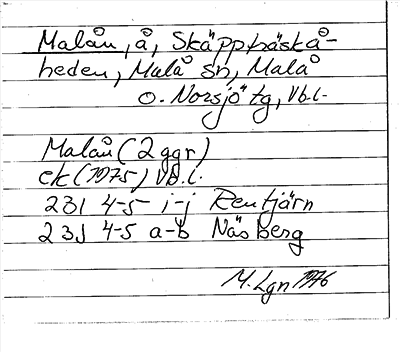 Malån, å, Skäppträskå-
heden, Malå sn, Malå
o. Norsjö tg, Vb.l.
Malån (2 ggr)
ek (1975) Vb.l.
23I 4-5 i-j Rentjärn
23J 4-5 a-b Näsberg
M. Lgn 1976